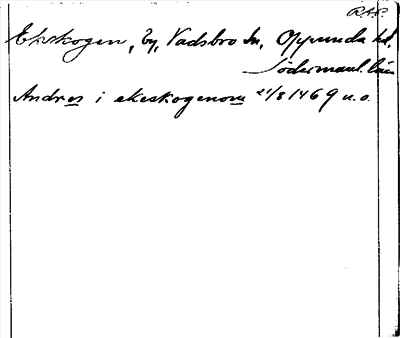 R.A.P.
Ekskogen, by, Vadsbro sn, Oppunda hd,
Södermanl. län
Andres i ekeskogenom 21/8 1469 u.o.